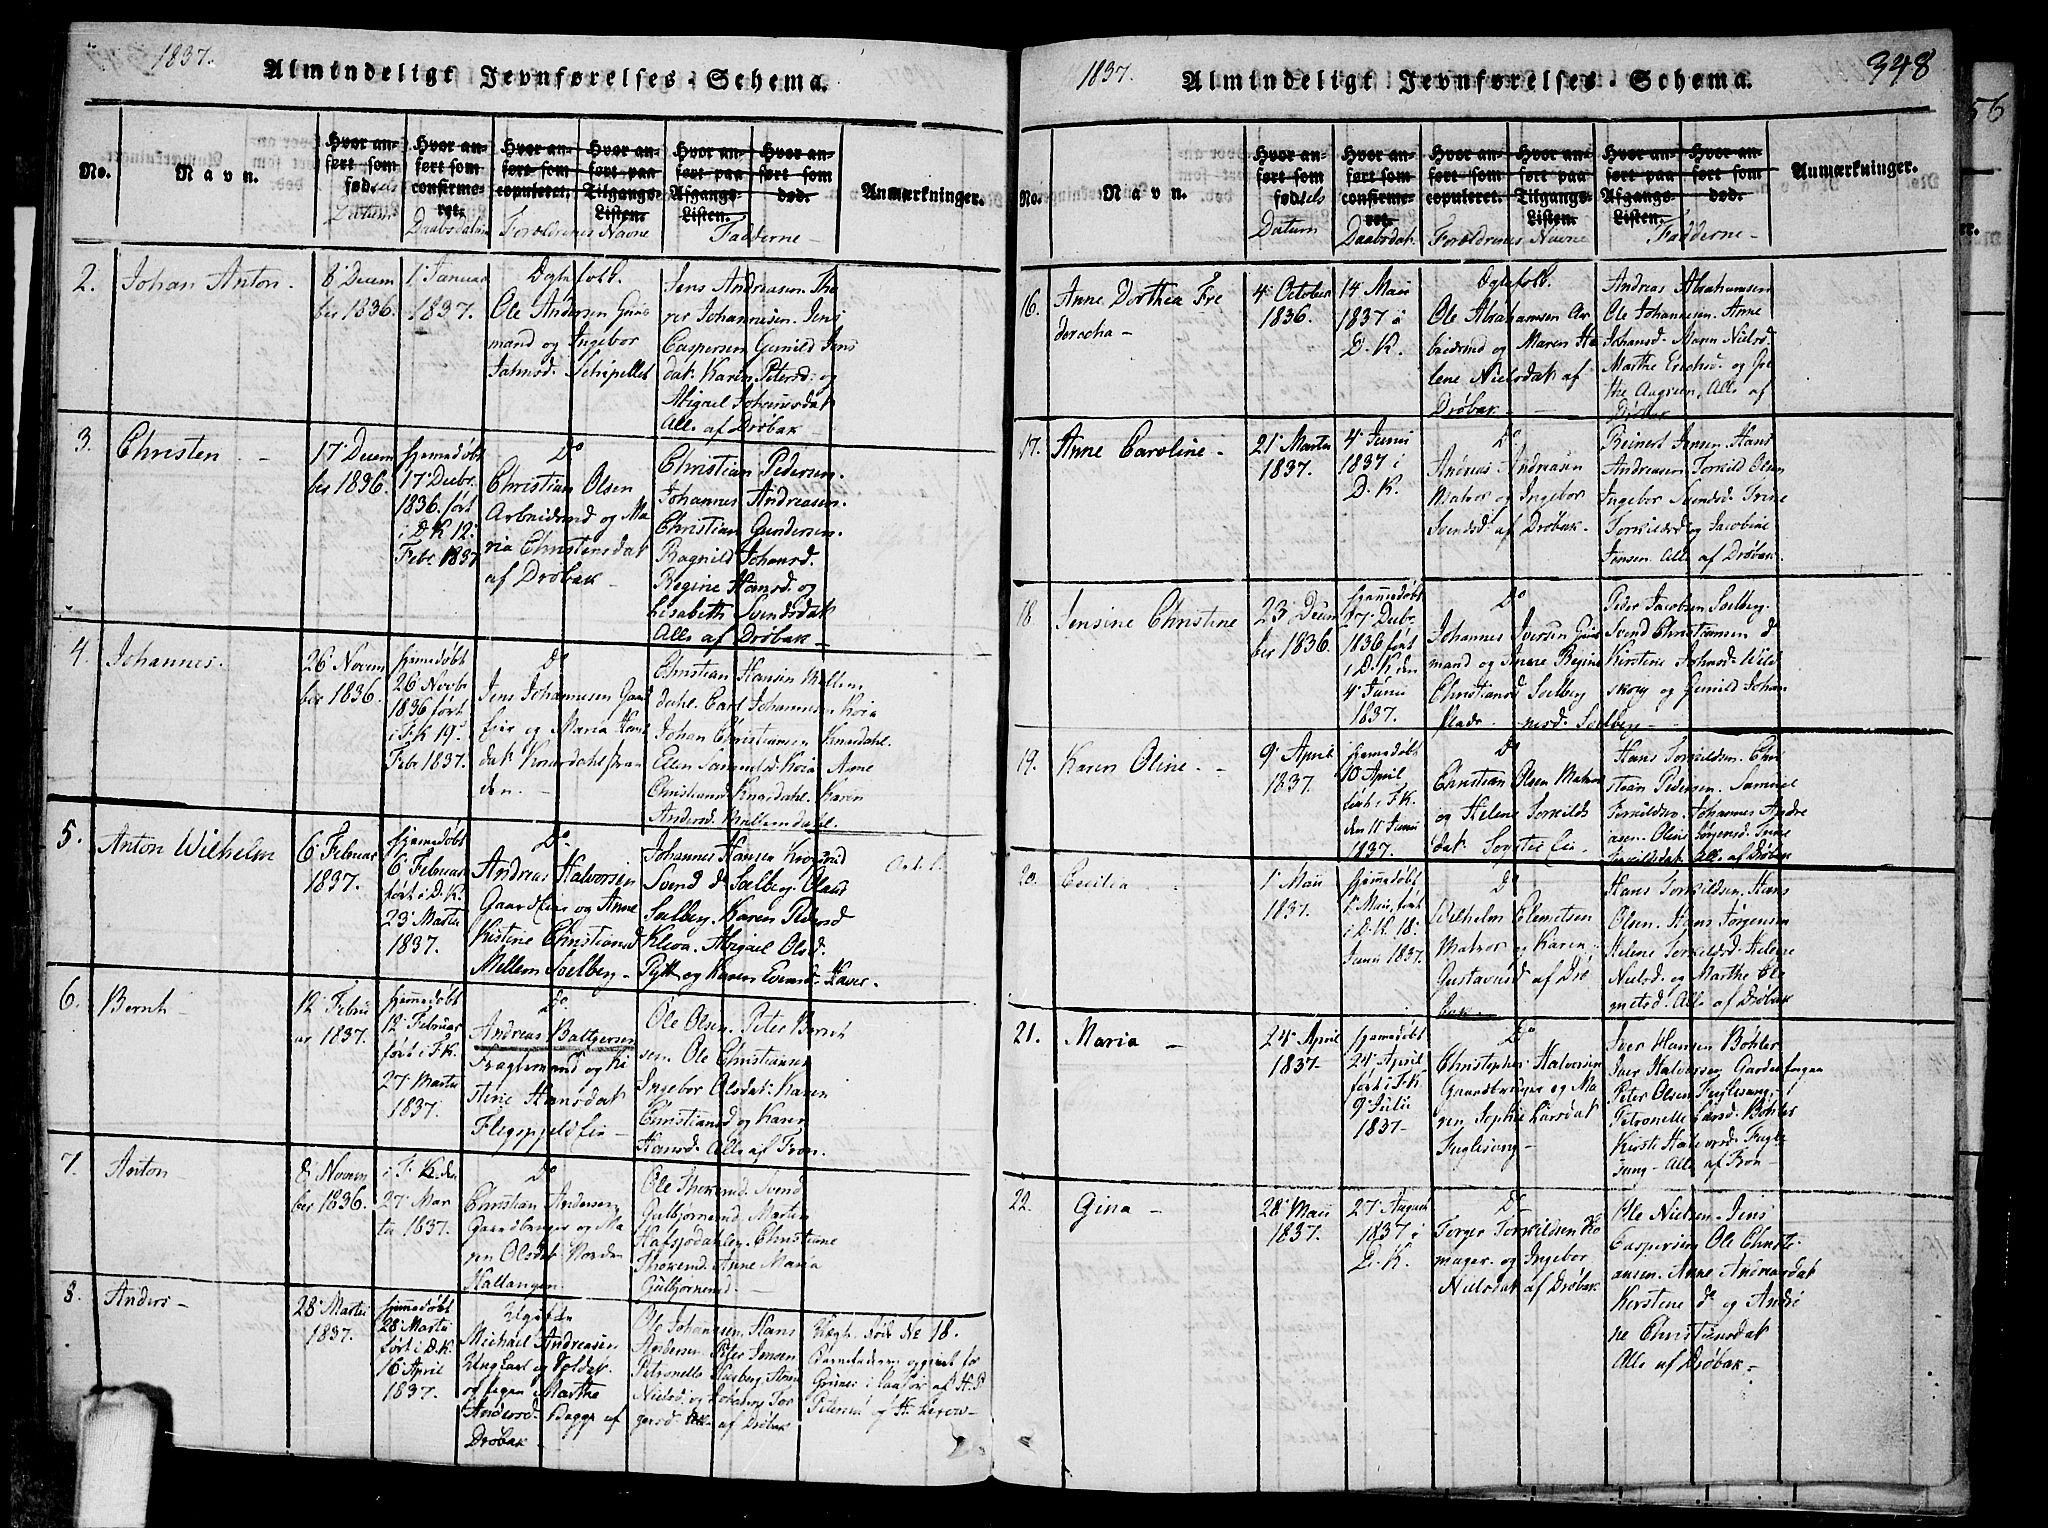 1837.
Almindeligt Jevnførelses-Schema.
No.
Navn.
Hvor an-
ført som
fødsels
Datum
Hvor an-
ført som
confirme-
ret.
Daabsdatum
Hvor an-
ført som
copuleret.
Hvor an-
ført paa
Tilgangs-
Listen.
Forældrenes Navne
Hvor an-
ført paa
Afgangs-
Listen.
Hvor an-
ført som
død.
Fadderne
Anmærkninger.
2.
Johan Anton.
8 Decem
ber 1836.
1 Januar
1837.
Ægtefolk.
Ole Andersen
mand og Ingebor
Jens Andreasen
Johannesen. Jens
Caspersen Gunild Jens
dat. Karen Petersd. og
Abigael Johannesdat
Alle af Drøbak
3.
Christen
17 Decem
ber 1836.
hjemmedøbt
17 Decbr.
1836. ført
i D.K 12
Febr. 1837
Do
Christian Olsen
Arbeidsmd og Ma
ria Christensdat
af Drøbak
Christian Pedersen.
Johannes Andreasen.
Christian Gundersen.
Ragnild Johansd.
Regine Hansd. og
Lisabeth Svendsdat
Alle af Drøbak
4.
Johannes.
26 Novem
ber 1836.
hjemmedøbt
26 Novbr
1836 ført
i F.K 19
Febr 1837.
Do
Jens Johannesen Gaard
eier og Maria Hans
dat
den.
Christian Hansen Mellem
dahl. Carl Johannesen
Johan Christiansen Knardahl.
Ellen Samuelsd. Anne
Christiansd Knardahl. Karen
Andersd. Mellemdahl.
5.
Anton Wilhelm
6 Februar
1837.
hjemmedøbt
6 Februar
ført i D.K.
23 Martii
1837.
Do
Andreas Halvorsen
Gaardeier og Anne
Kistine Christiansd
Mellem Solberg
Johannes Hansen
Svend do Solberg. Olaus
Solberg. Karen Pedersd
Kleva. Abigael Olsd.
og Karen
6.
Bernt
12 Febru
ar 1837.
hjemmedøbt
12 Februar
ført i F.K.
27 Martii
1837.
Do
Andreas Baltzersen
og Ki
stine Hansdat
Ole Olsen. Peter Bernt
sen. Ole Christiansen
Ingebor Olsdat. Karen
Christiansd og Karen
Hansd. Alle af Fron.
7.
Anton
8 Novem
ber 1836.
i F.K. den
27 Mar
tii 1837.
Do
Christian Andersen
Gaardbruger og Ma
ren Olsdat Norden
Hallangen
Svend
Gulbjørnsrud. Marten
Christiane
Anne Maria
Gulbjørnsrud
8.
Anders
28 Martii
1837.
hjemmedøbt
28 Martii
ført i D.K
16 April
1837.
Ugifte
Michael Andreasen
Ungkarl og
Marthe
Andersd. Bagge af
Drøbak
Ole Johansen. Hans
Andersen. Peter Jensen
Petronelle Hasberg.
Nielsd. og
Alle af Drøbak
No 18.
Barnefaderen
1837.
Almindeligt Jevnførelses-Schema.
348
No.
Navn.
Hvor an-
ført som
fødsels
Datum
Hvor an-
ført som
confirme-
ret
Daabsdat.
Hvor an-
ført som
copuleret.
Hvor an-
ført paa
Tilgangs-
Listen.
Forældrenes Navne
Hvor an-
ført paa
Afgangs-
Listen.
Hvor an-
ført som
død.
Fadderne
Anmærkninger.
16.
Anne Dorthea Fre
4 October
1836.
14 Maii
1837 i
D.K.
Ægtefolk.
Ole Abrahamsen Ar
beidsmd og Maren He
lene Nielsdat af
Drøbak
Andreas Abrahamsen
Ole Johannesen. Anne
Johansd. Maren Nielsd.
Marthe Erichsd. og
Alle af
Drøbak
17.
Anne Caroline
21 Martii
1837.
4 Junii
1837 i
D.K.
Do
Andreas Andreasen
Matros og Ingebor
Svendsd. af Drøbak
Reinert Jensen. Hans
Andreasen. Torkild Olsen
Ingebor Svendsd. Trine
Torkildsd og Jacobine
Jensen. Alle af Drøbak
18.
Jensine Christine
23 Decem
ber 1836.
hjemmedøbt
27 Decbr.
1836 ført
i D.K. den
4 Junii
1837.
Do
Johannes Iversen
mand og Anne Regine
Christiansd Solberg
Peder Jacobsen Solberg.
Svend Christiansen do
Kirstine Johnsd. Wild
skov og Gunild Johan
nesd. Solberg
19.
Karen Oline.
9 April
1837.
hjemmedøbt
10 April
ført i F.K.
den 11 Junii
1837.
Do
Christian Olsen Matros
og Helene Torkilds
dat
Hans Torkildsen. Chri
stian Pedersen. Samuel
Torkildsen. Johannes Andre
asen. Oline Jørgensd. Trine
Torkildsdat. Alle af Drøbak
20.
Cecilia
1 Maii
1837.
hjemmedøbt
Maii, ført
i D.K. 18
Junii 1837.
Do
Wilhelm Clemetsen
Matros og Karen
Gustavusd af Drø
bak
Hans Torkildsen. Hans
Olsen. Hans Jørgensen
Helene Torkildsd. Helene
Nielsd. og Marthe Cle
metsd. Alle af Drøbak
21.
Maria
24 April
1837.
hjemmedøbt
24 April
ført i F.K
9 Julii
1837.
Do
Christopher Halvorsen
Gaardbruger og Ma
ren Sophie Larsdat
Fuglesang
Iver Hansen Bøhler
Iver Halvorsen
Peter Olsen Fuglesang.
Petronelle Larsd. Bøhler
Kirsti Halvorsd. Fugle
sang. Alle af Fron
22.
Gina
28 Maii
1837.
27 August
1837 i
D.K.
Do
Torger Torkildsen Sko
mager og Ingebor
Nielsdat af Drøbak.
Ole Nielsen. Jens
Caspersen. Ole Christi
ansen. Anne Andreasdat
Kirstene do og Andri
ne Christiansdat
Alle af Drøbak
56